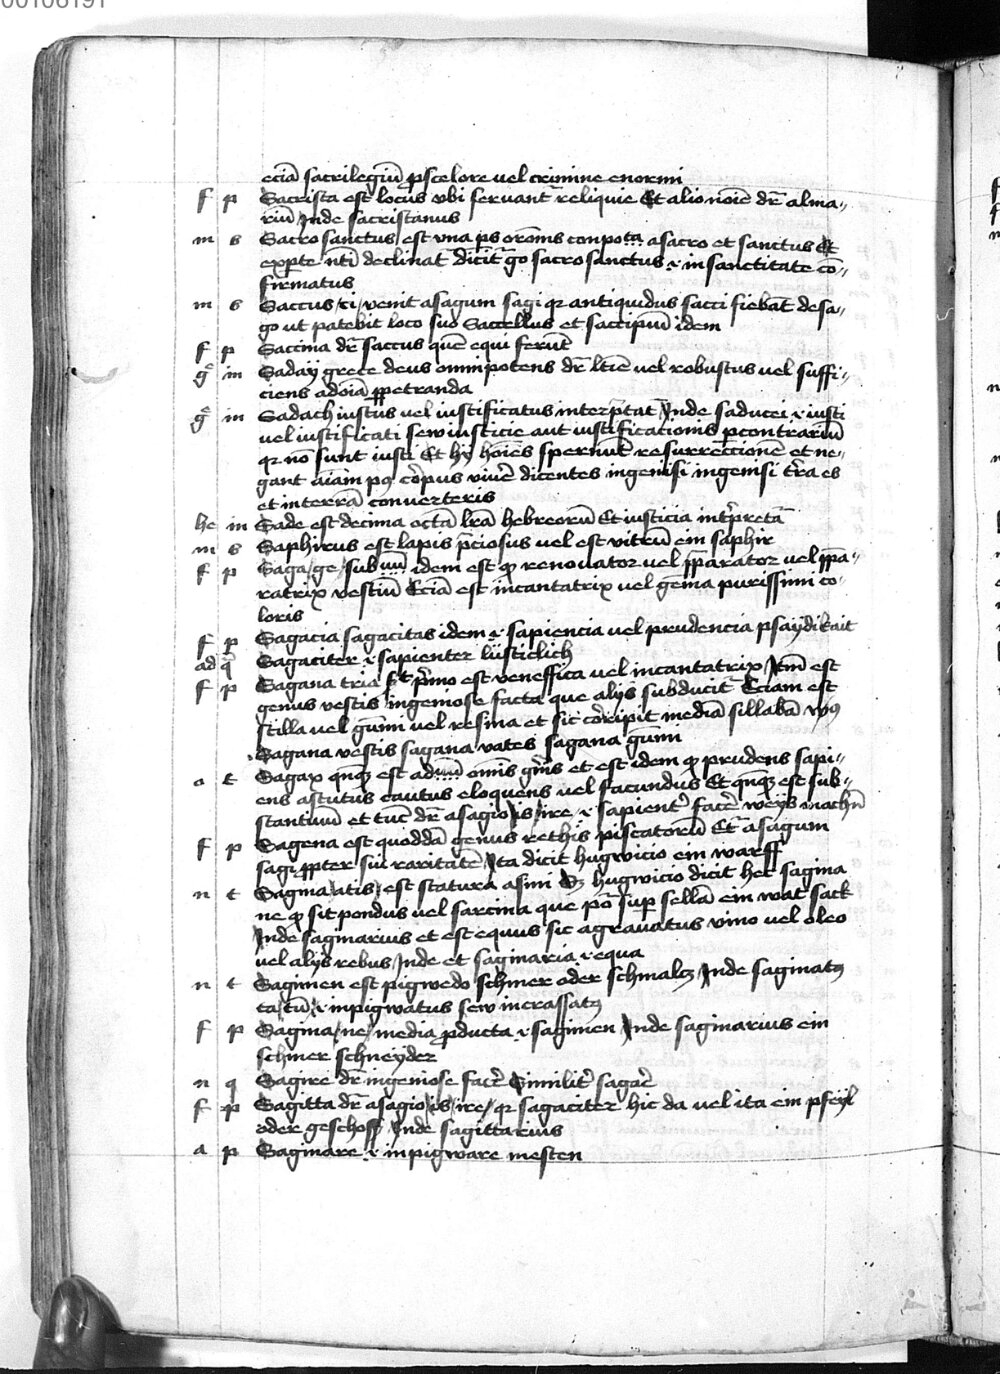 00106191
eciā sacrilegiū pscelore vel crimine enormi
f p Sacrista est locus vbi servant᷑ reliquie Et alio noīe dr̄ alma-
riū Inde sacristanus
m s Sacrosanctus est vna ps oroīs conpo͡ta a sacro et sanctus Et
exp̱te nt̄i declinat᷑ dicit᷑ g̊o sacrosanctus .i. in sanctitate cō-
firmatus
m s Saccus /ci/ venit a sagum sagi qr antiquidus sacci fiebāt de sa-
go ut patebit loco suo Saccellus et saccipiū idem
f p Saccina dr̄ saccus quē equi ferūt
gͤ in Saday grece deus omnipotens dr̄ ltīe vel robustus vel suffi-
ciens ad oīa ꝑpetranda
gͤ in Sadach iustus vel iustificatus interp̄tat᷑ Inde saducei .i. iusti
vel iustificati sew iusticie aut iustificacionis ꝑ contrariū
qr nō sunt iusti Et hÿ hoīes spernūt resurrectionē et ne-
gant aīam pꝰ corpus viuē dicentes ingemisi ingemsi t̄ra es
et in terrā converteris
he in Sade est decima octā lrā hebreorū Et iusticia int̄pretā
m s Saphirus est lapis p̄ciosus vel est vitrū ein saphir
f p Saga /ge/ sub uū idem est qͦ renovator vel p̄parator vel p̄pa-
ratrix vestiū Eciā est incantatrix vel gēma purissimi co-
loris
f p Sagacia sagacitas idem .i. sapiencia vel prudencia
ad q̄ Sagaciter .i. sapienter lüsticlich
f p Sagana tria s̄t p̄mo est veneffica vel incantatrix Itm̄ est
genus vestis ingeniose facta que alijs subducit᷑ Eciam est
stilla vel gūmi vel resina et sic corripit mediā sillabā vꝰꝰ
Sagana vestis sagana vates sagana gūmi
o t Sagax qnq̄ est ad uū om̄is gn̄is et est idem qͦ prudens sapi-
ens astutus cautus eloquens vel facundus Et qnq̄ est sub-
stantiuū et tūc dr̄ a sagio /is /ire .i. sapient᷑ facē weÿs machn̄
f p Sagena est quoddā genus rethis piscatorū Et᷑ a sagum
sagi ꝓpter sui raritatē Ita dicit hugwicio ein warff
n t Sagma /atis/ est statura asini Sꝫ hugwicio dicit hec sagina
ne qͦ sit pondus vel sarcina que pō suꝑ sellā ein wat sack
Inde sagmarius et est equus sic agravatus vino vel oleo
vel alijs rebus Inde et saginaria .i. equa
n t Sagimen est pigwedo schmer oder schmalcz Inde saginatꝰ
ta /tū/ .i. inpigwatus sew incrassatꝰ
f p Sagina /ne/ media ꝓducta .i. sagimen Inde saginarius ein
schmer schneÿder
n q Sagire dr̄ ingeniose facē Similit᷑ sagac᷑
f p Sagitta dr̄ a sagio /is/ ire/ qr sagaciter hic da vel ita ein pfeÿl
oder geschoss Inde sagittarius
a p Sagmare .i. inpigware mesten